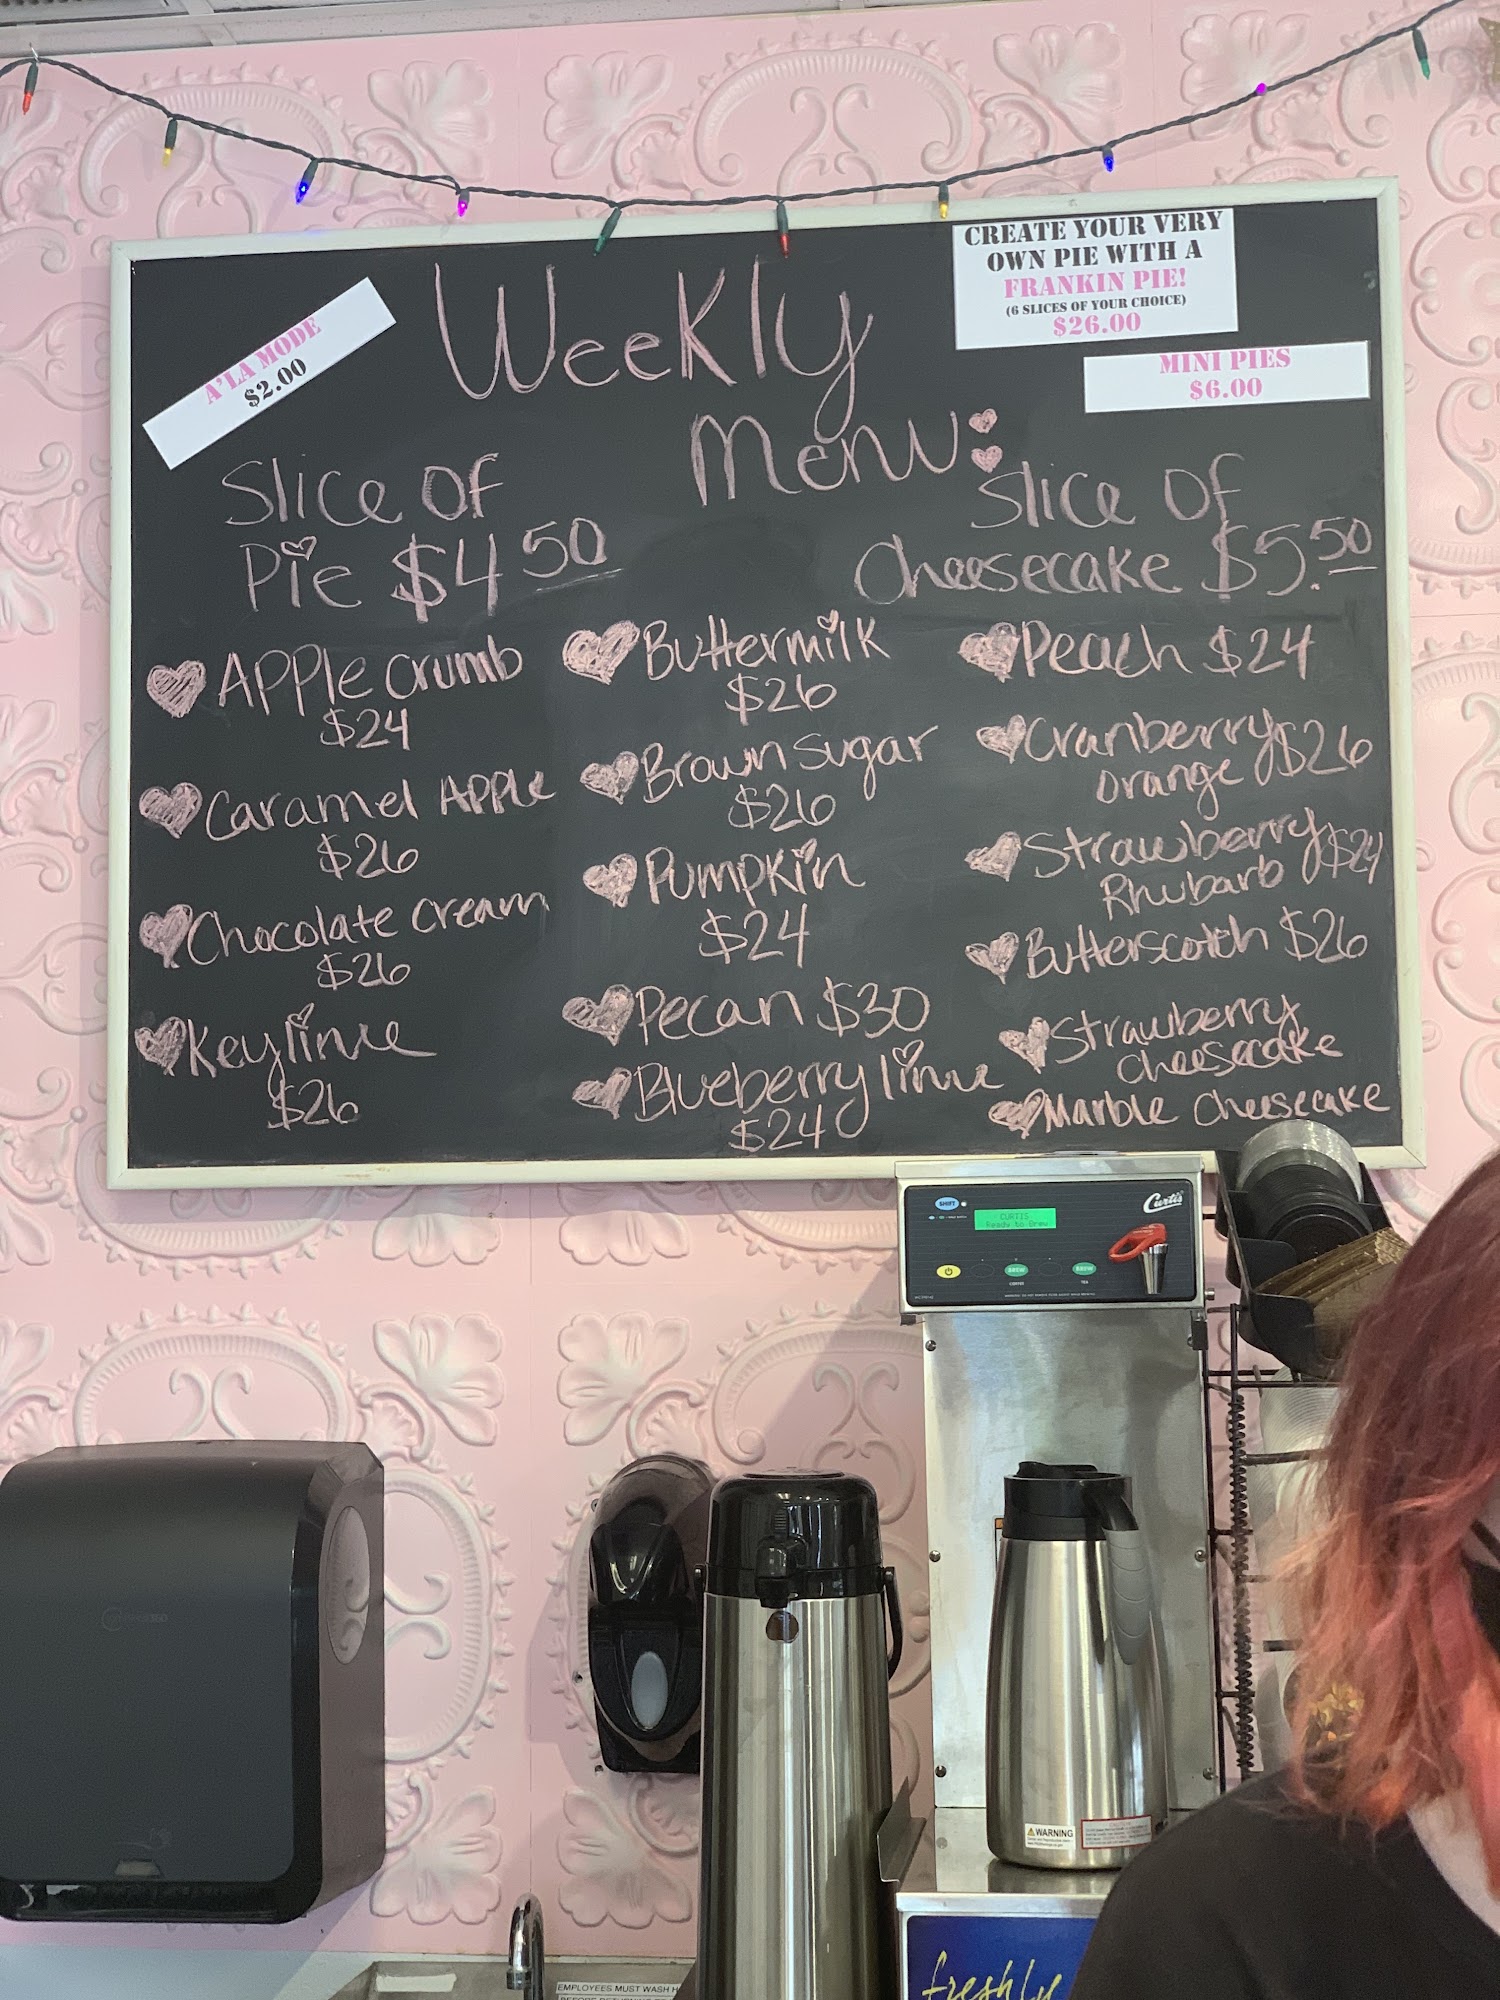 CREATE YOUR VERY
OWN PIE WITH A
FRANKIN PIE!
(6 SLICES OF YOUR CHOICE)
$26.00
MINI PIES
$6.00
A'LA MODE
$2.00
Weekly
Menu:
Slice Of
Pie $4 50
Slice Of
Cheesecake $5.50
Apple Crumb
$24
Caramel Apple
$26
Chocolate Cream
$26
Keylime
$26
Buttermilk
$26
Brown Sugar
$26
Pumpkin
$24
Pecan $30
Blueberry lime
$24
Peach $24
Cranberry $26
Orange
Strawberry $24
Rhubarb
Butterscotch $26
Strawberry
Cheesecake
Marble Cheesecake
SHIFT
CURTIS
Ready to Brew
Curtis
BREW
BREW
COFFEE
TEA
WARNING
freshly
EMPLOYEES MUST WASH